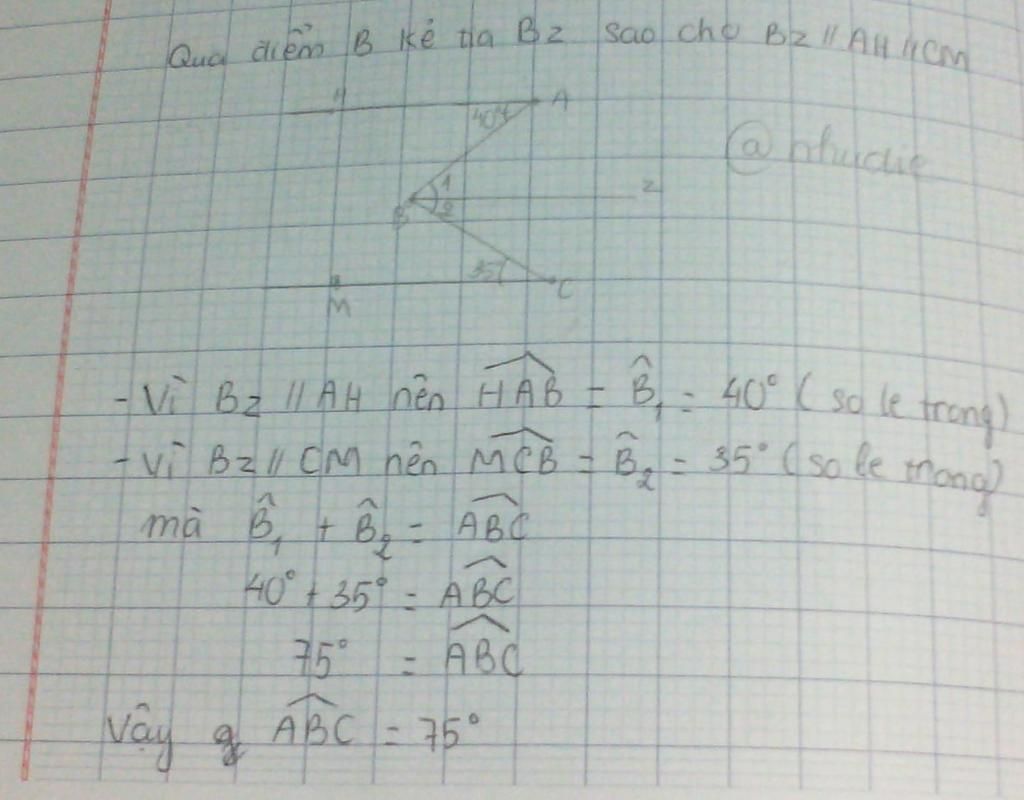 Qua điểm B kẻ tia Bz sao cho Bz // AH // CM
H
A
40°
1
2
z
B
35°
M
C
- Vì Bz // AH nên HAB = B̂₁ = 40° (so le trong)
- Vì Bz // CM nên MCB = B̂₂ = 35° (so le trong)
mà B̂₁ + B̂₂ = ABC
40° + 35° = ABC
75° = ABC
Vậy ABC = 75°